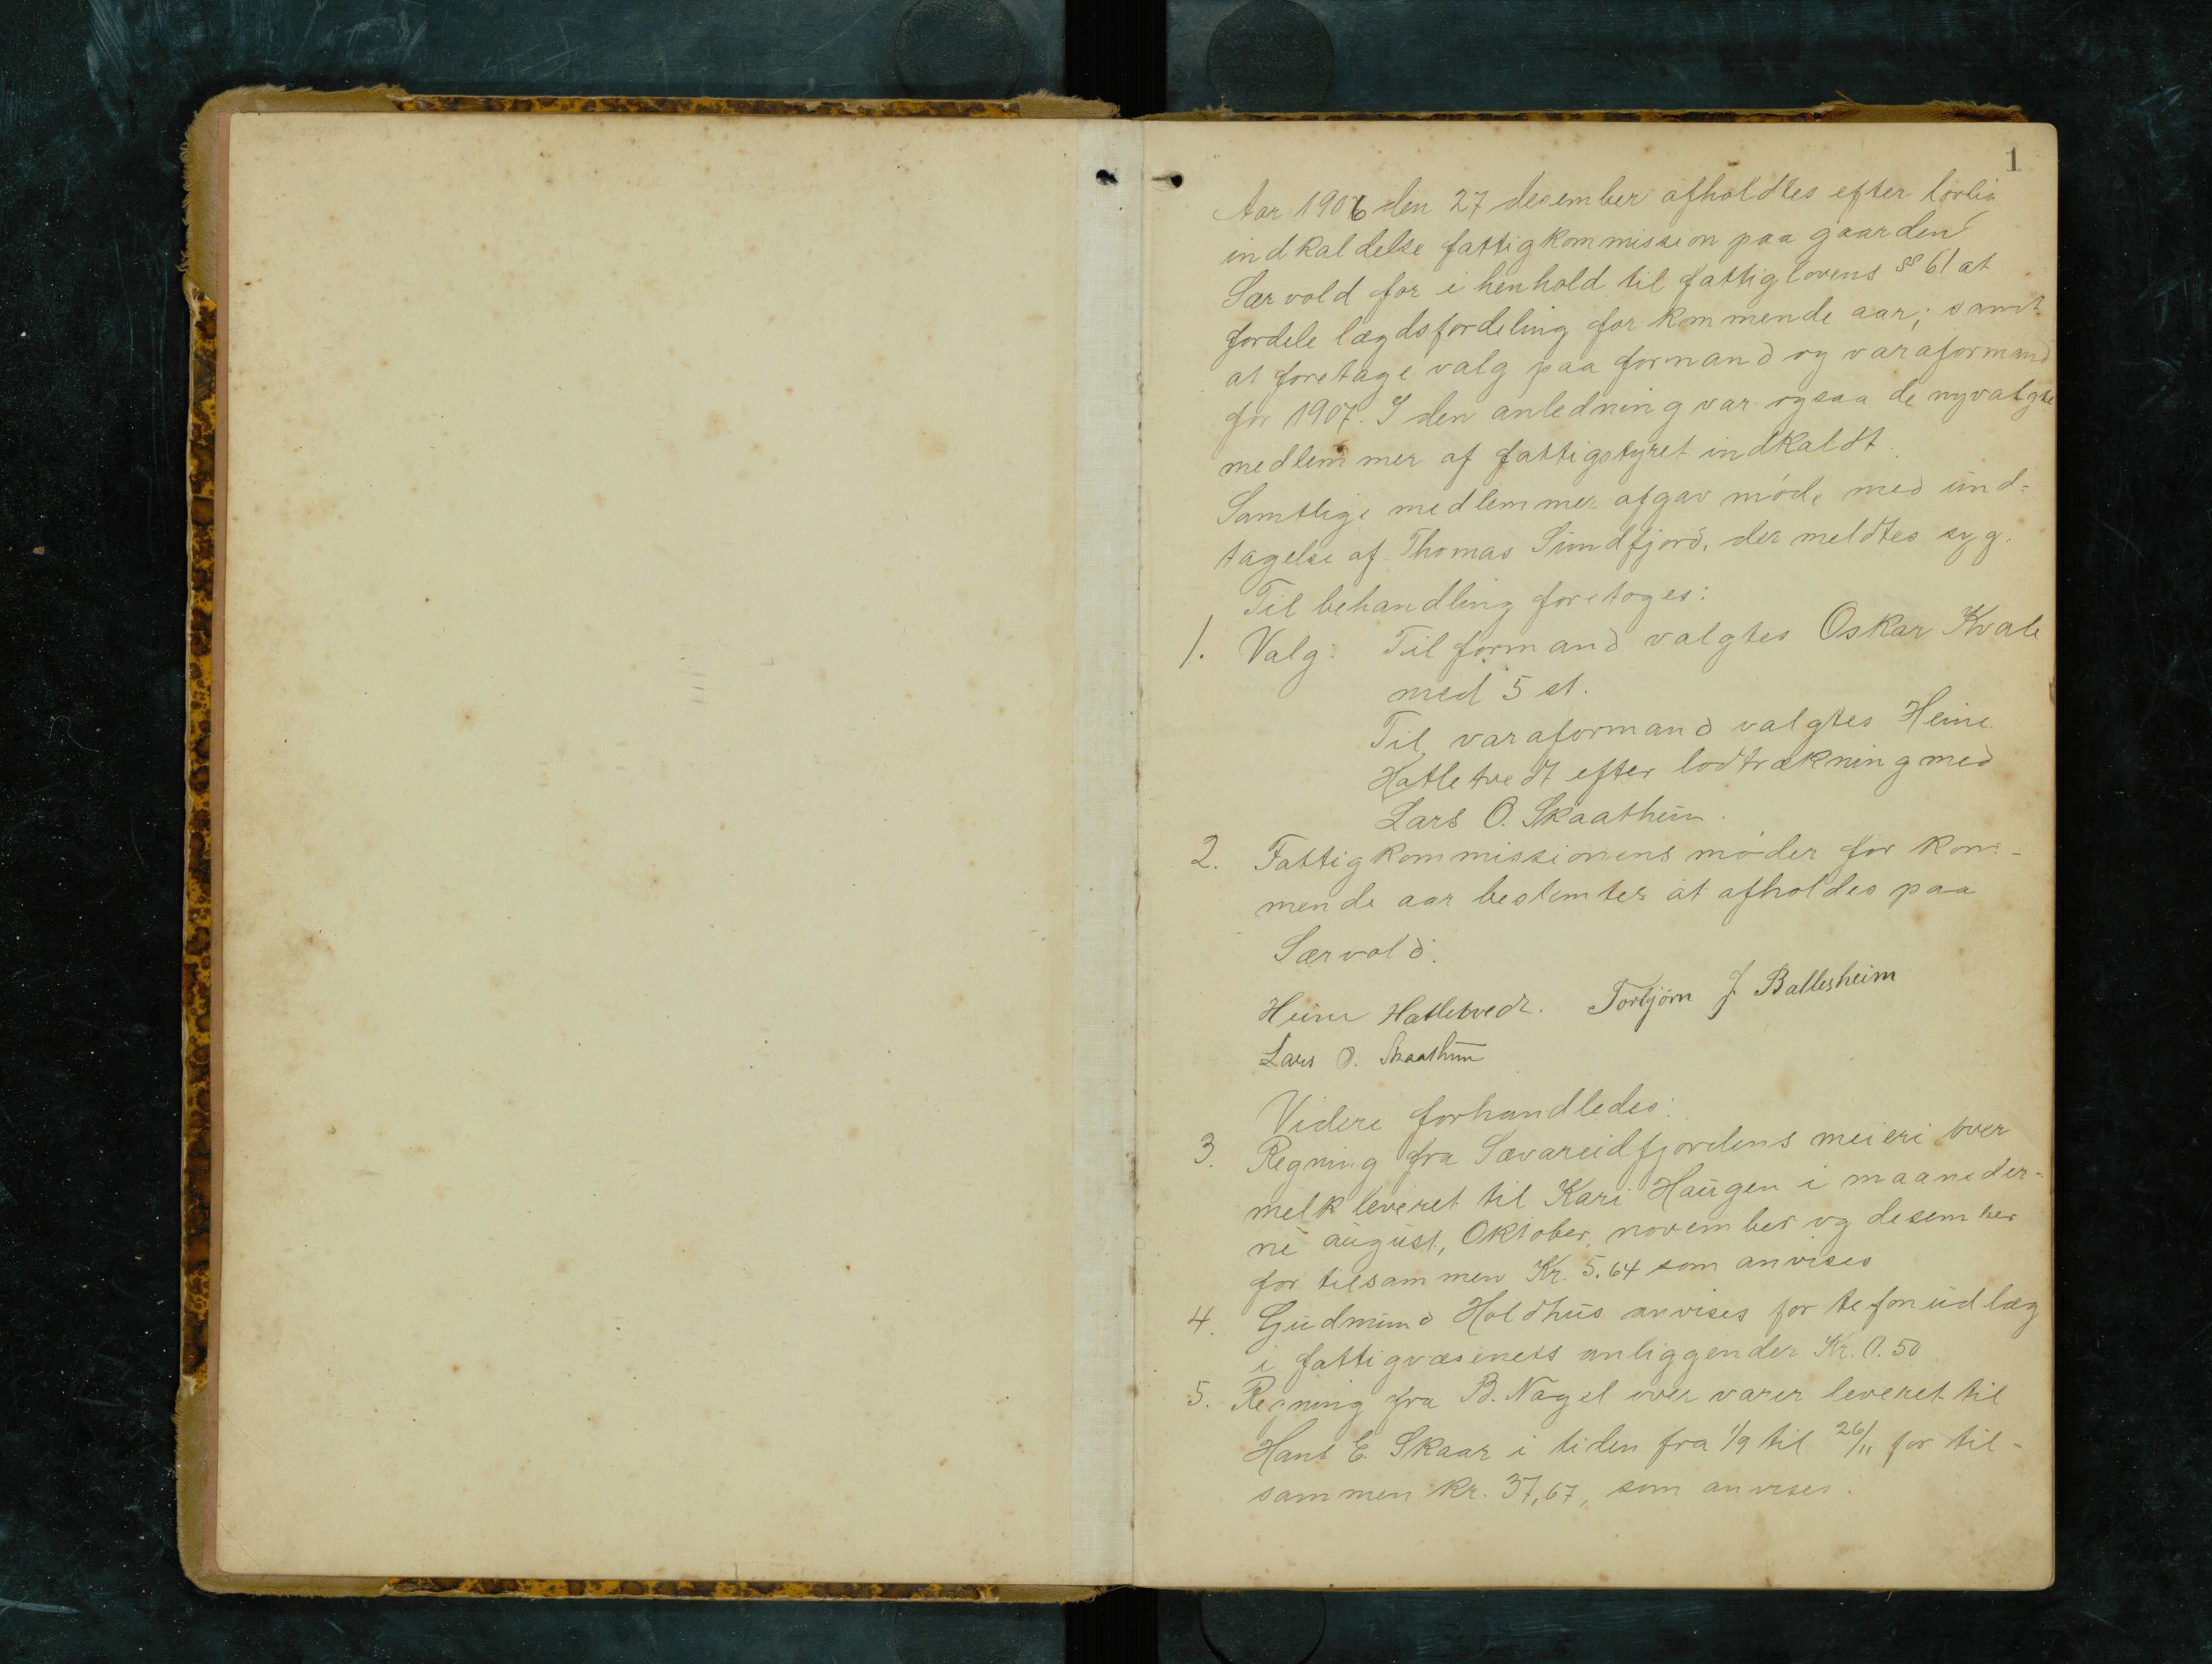 1
Aar 1906 den 27 desember afholdtes efter lovlig
indkaldelse fattigkommission paa gaarden
Særvold for i henhold til fattiglovens § 61 at
fordele lægdsfordeling for kommende aar; samt
at foretage valg paa formand og varaformand
for 1907. I den anledning var ogsaa de nyvalgte
medlemmer af fattigstyret indkaldt.
Samtlige medlemmer afgav møde med und-
tagelse af Thomas Sundfjord, der meldtes syg.
Til behandling foretoges:
1. Valg: Til formand valgtes Oskar Kvale
med 5 st.
Til varaformand valgtes Heine
Hatletvedt efter lodtrækning med
Lars O. Skaathun.
2. Fattigkommissionens møder for kom-
mende aar bestemtes at afholdes paa
Særvold.
Heine Hatletvedt. Torbjørn J. Ballesheim
Lars O. Skaathun
Videre forhandledes:
3. Regning fra Sævareidfjordens meieri over
melk leveret til Kari Haugen i maaneder-
ne august, Oktober, november og desember
for tilsammen Kr. 5.64 som anvises
4. Gudmund Holdhus anvises for tefonudlæg
i fattigvæsenets anliggender Kr. 0.50
5. Regning fra B. Nagel over varer leveret til
Hans E. Skaar i tiden fra 1/9 til 26/11 for til-
sammen kr. 37,67, som anvises.